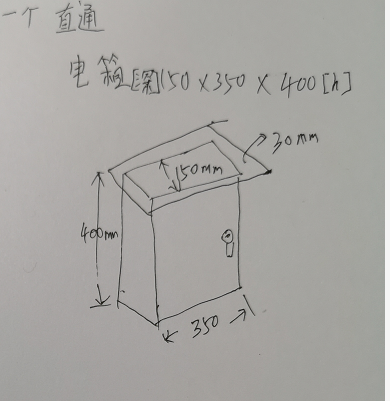 一个 直通
电箱[深]150×350×400[h]
30mm
150mm
400mm
350